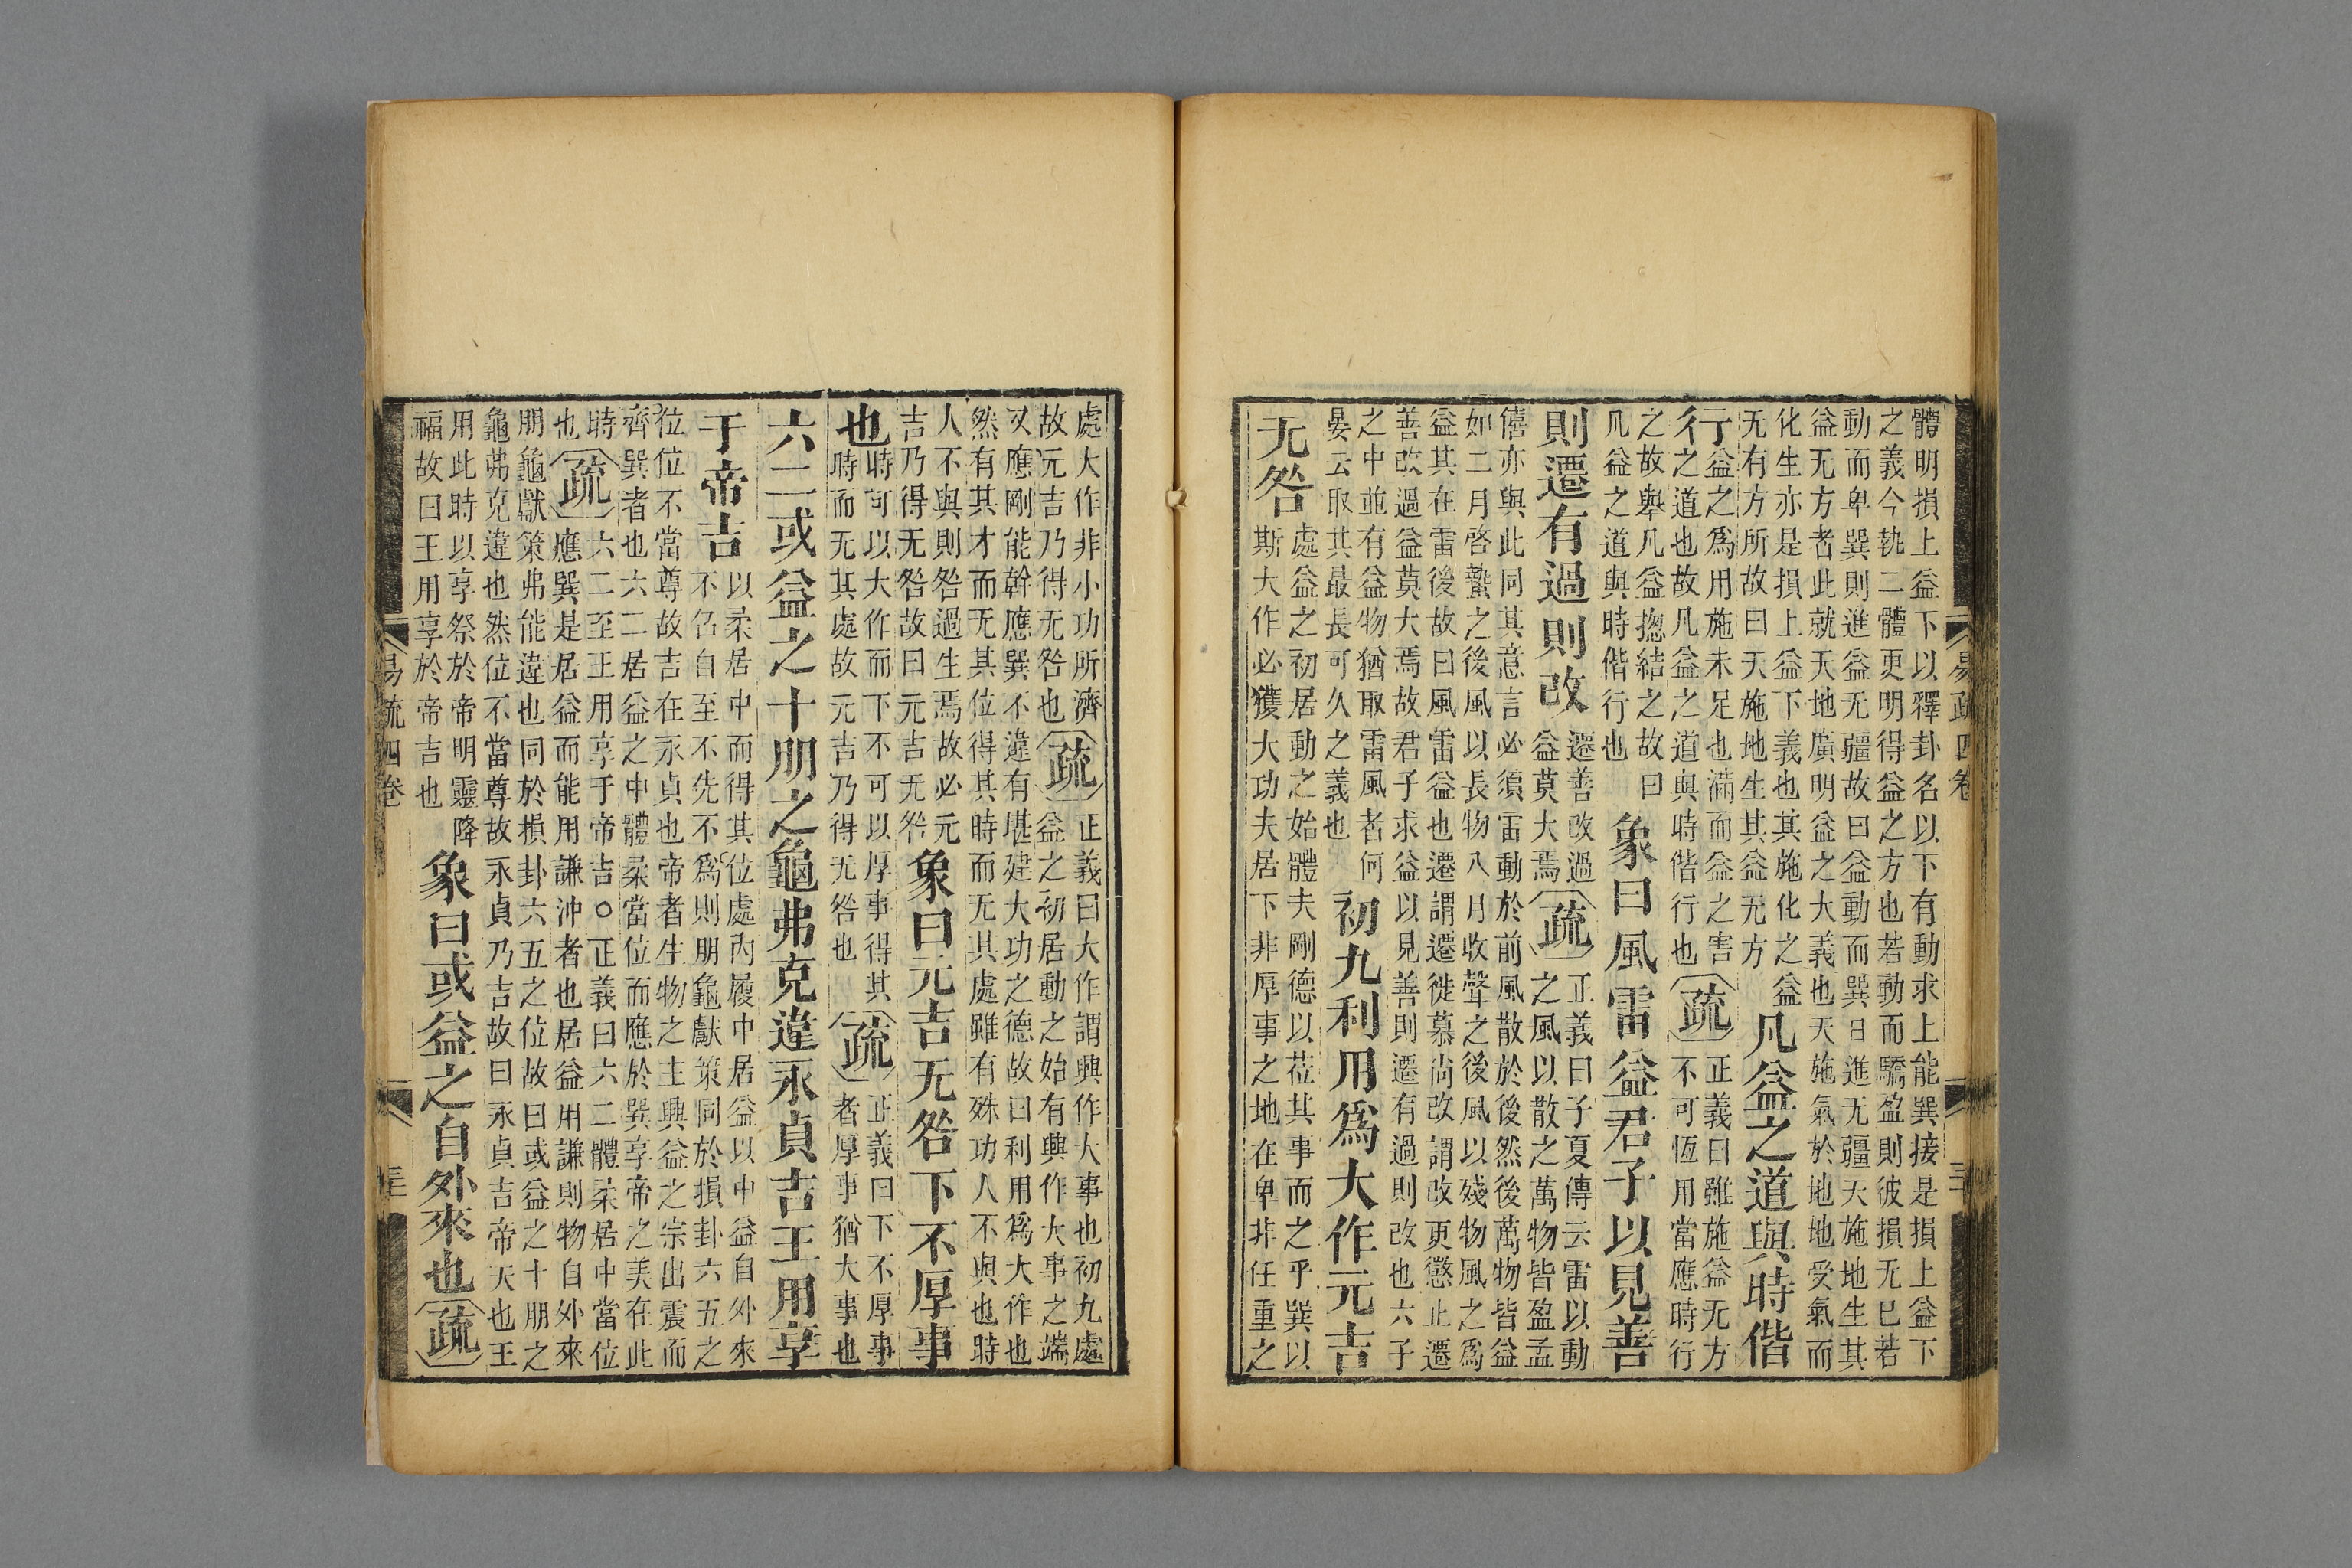 體明損上益下以釋卦名以下有動求上能巽接是損上益下
之義今執二體更明得益之方也若動而驕盈則彼損无已若
動而卑巽則進益无疆故曰益動而巽日進无疆天施地生其
益无方者此就天地廣明益之大義也天施氣於地地受氣而
化生亦是損上益下義也其施化之益
无有方所故曰天施地生其益无方
凡益之道與時偕
行
益之爲用施未足也滿而益之害
之道也故凡益之道與時偕行也
疏
正義曰雖施益无方
不可恆用當應時行
之故舉凡益揔結之故曰
凡益之道與時偕行也
象曰風雷益君子以見善
則遷有過則改
遷善改過
益莫大焉
疏
正義曰子夏傳云雷以動
之風以散之萬物皆盈孟
僖亦與此同其意言必須雷動於前風散於後然後萬物皆益
如二月啓蟄之後風以長物八月收聲之後風以殘物風之爲
益其在雷後故曰風雷益也遷謂遷徙慕尚改謂改更懲止遷
善改過益莫大焉故君子求益以見善則遷有過則改也六子
之中並有益物猶取雷風者何
晏云取其最長可久之義也
初九利用爲大作元吉
无咎
處益之初居動之始體夫剛德以莅其事而之乎巽以
斯大作必獲大功夫居下非厚事之地在卑非任重之
處大作非小功所濟
故元吉乃得无咎也
疏
正義曰大作謂興作大事也初九處
益之初居動之始有興作大事之端
又應剛能幹應巽不違有堪建大功之德故曰利用爲大作也
然有其才而无其位得其時而无其處雖有殊功人不與也時
人不與則咎過生焉故必元
吉乃得无咎故曰元吉无咎
象曰元吉无咎下不厚事
也
時可以大作而下不可以厚事得其
時而无其處故元吉乃得无咎也
疏
正義曰下不厚事
者厚事猶大事也
六二或益之十朋之龜弗克違永貞吉王用享
于帝吉
以柔居中而得其位處內履中居益以中益自外來
不召自至不先不爲則朋龜獻策同於損卦六五之
位位不當尊故吉在永貞也帝者生物之主興益之宗出震而
齊巽者也六二居益之中體柔當位而應於巽享帝之美在此
時
也
疏
六二至王用享于帝吉○正義曰六二體柔居中當位
應巽是居益而能用謙沖者也居益用謙則物自外來
朋龜獻策弗能違也同於損卦六五之位故曰或益之十朋之
龜弗克違也然位不當尊故永貞乃吉故曰永貞吉帝天也王
用此時以享祭於帝明靈降
福故曰王用享於帝吉也
象曰或益之自外來也
疏
易疏四卷